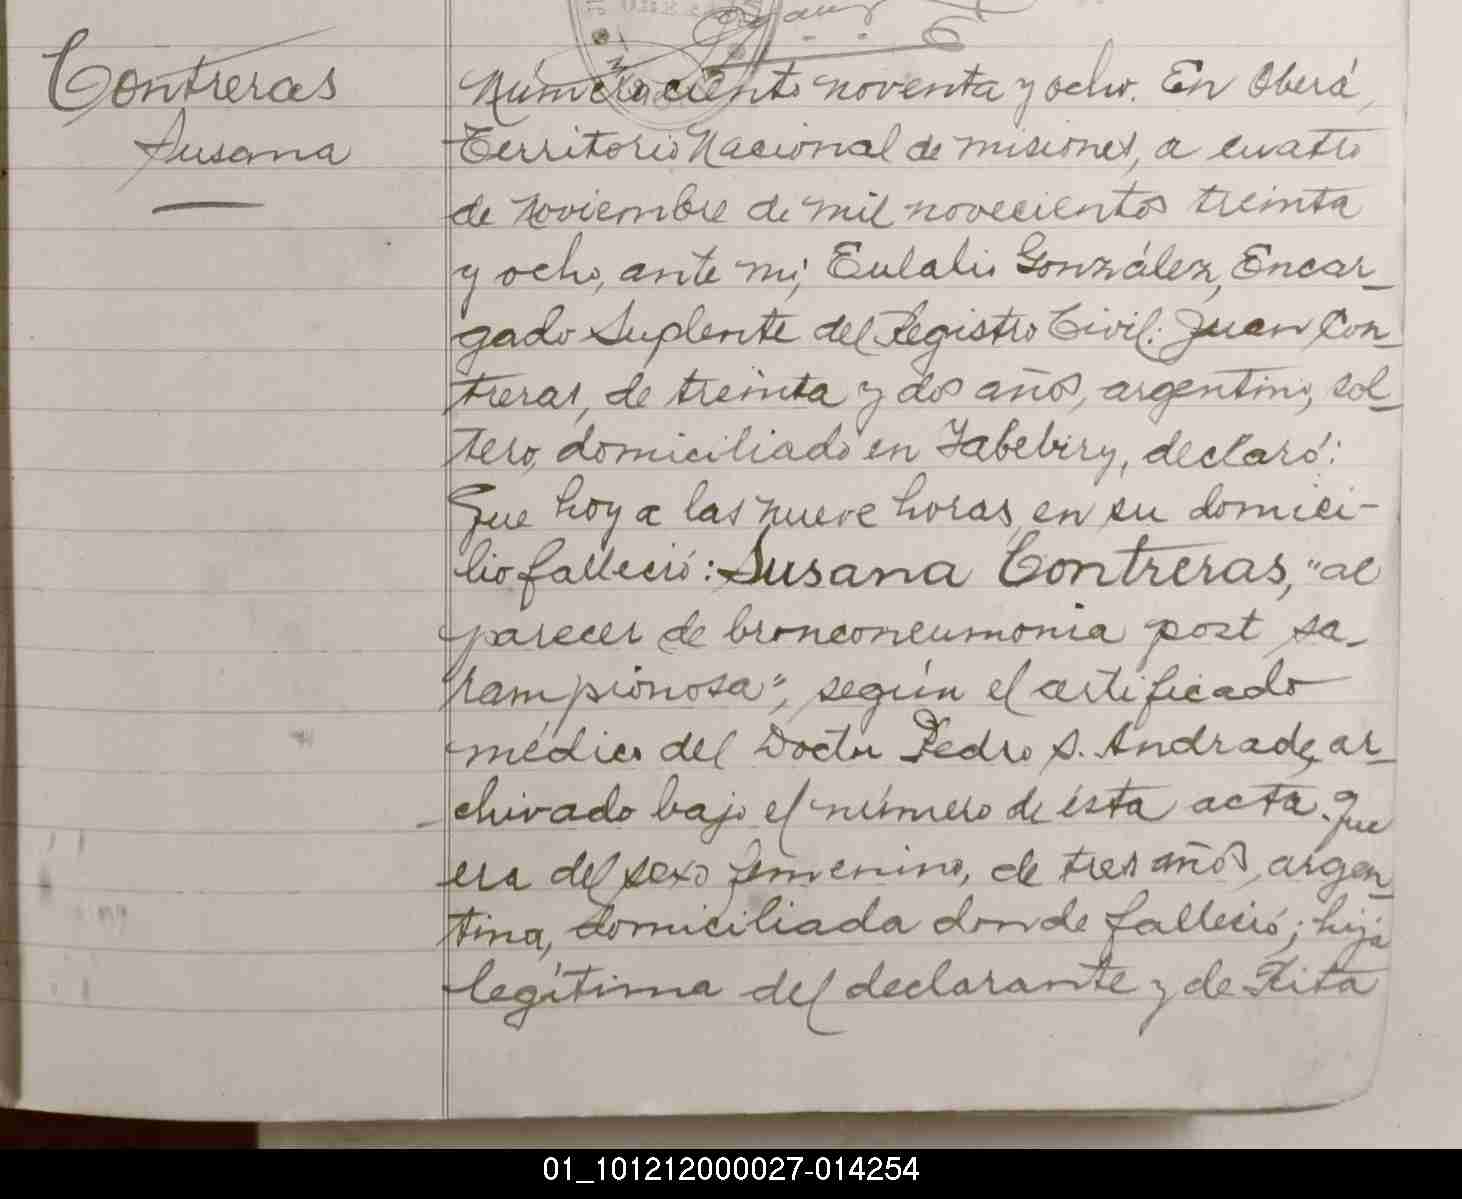 Contreras
Susana
Número ciento noventa y ocho. En Oberá,
Territorio Nacional de misiones, a cuatro
de Noviembre de mil novecientos treinta
y ocho, ante mi, Eulalio González, Encar_
gado Suplente del Registro Civil: Juan Con_
treras, de treinta y dos años, argentino, sol_
tero, domiciliado en Yabebiry, declaró:
Que hoy a las nueve horas, en su domici-
lio falleció: Susana Contreras, "al
parecer de bronconeumonia post sa_
rampionosa", según el certificado
médico del Doctor Pedro S. Andrade, ar_
chivado bajo el número de ésta acta. Que
era del sexo femenino, de tres años, argen_
tina, domiciliada donde falleció; hija
legítima del declarante y de Rita
01_101212000027-014254